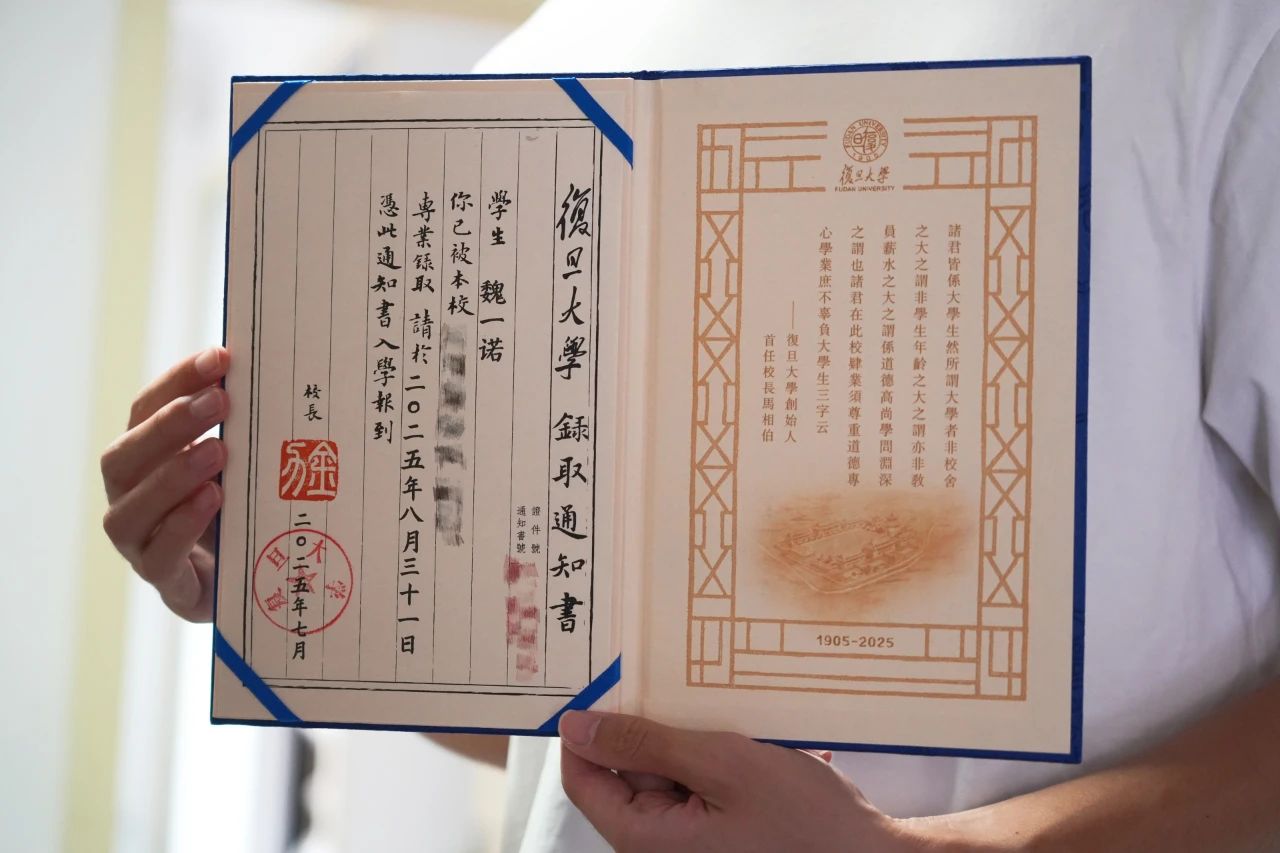 復旦大學 錄取通知書
證件號
通知書號
學生 魏一诺
你已被本校
專業錄取 請於二〇二五年八月三十一日
憑此通知書入學報到
校長
二〇二五年七月
復旦大學
FUDAN UNIVERSITY
1905
復旦大學
FUDAN UNIVERSITY
諸君皆係大學生然所謂大學者非校舍
之大之謂非學生年齡之大之謂亦非教
員薪水之大之謂係道德高尚學問淵深
之謂也諸君在此校肄業須尊重道德專
心學業庶不辜負大學生三字云
——復旦大學創始人
首任校長馬相伯
1905-2025